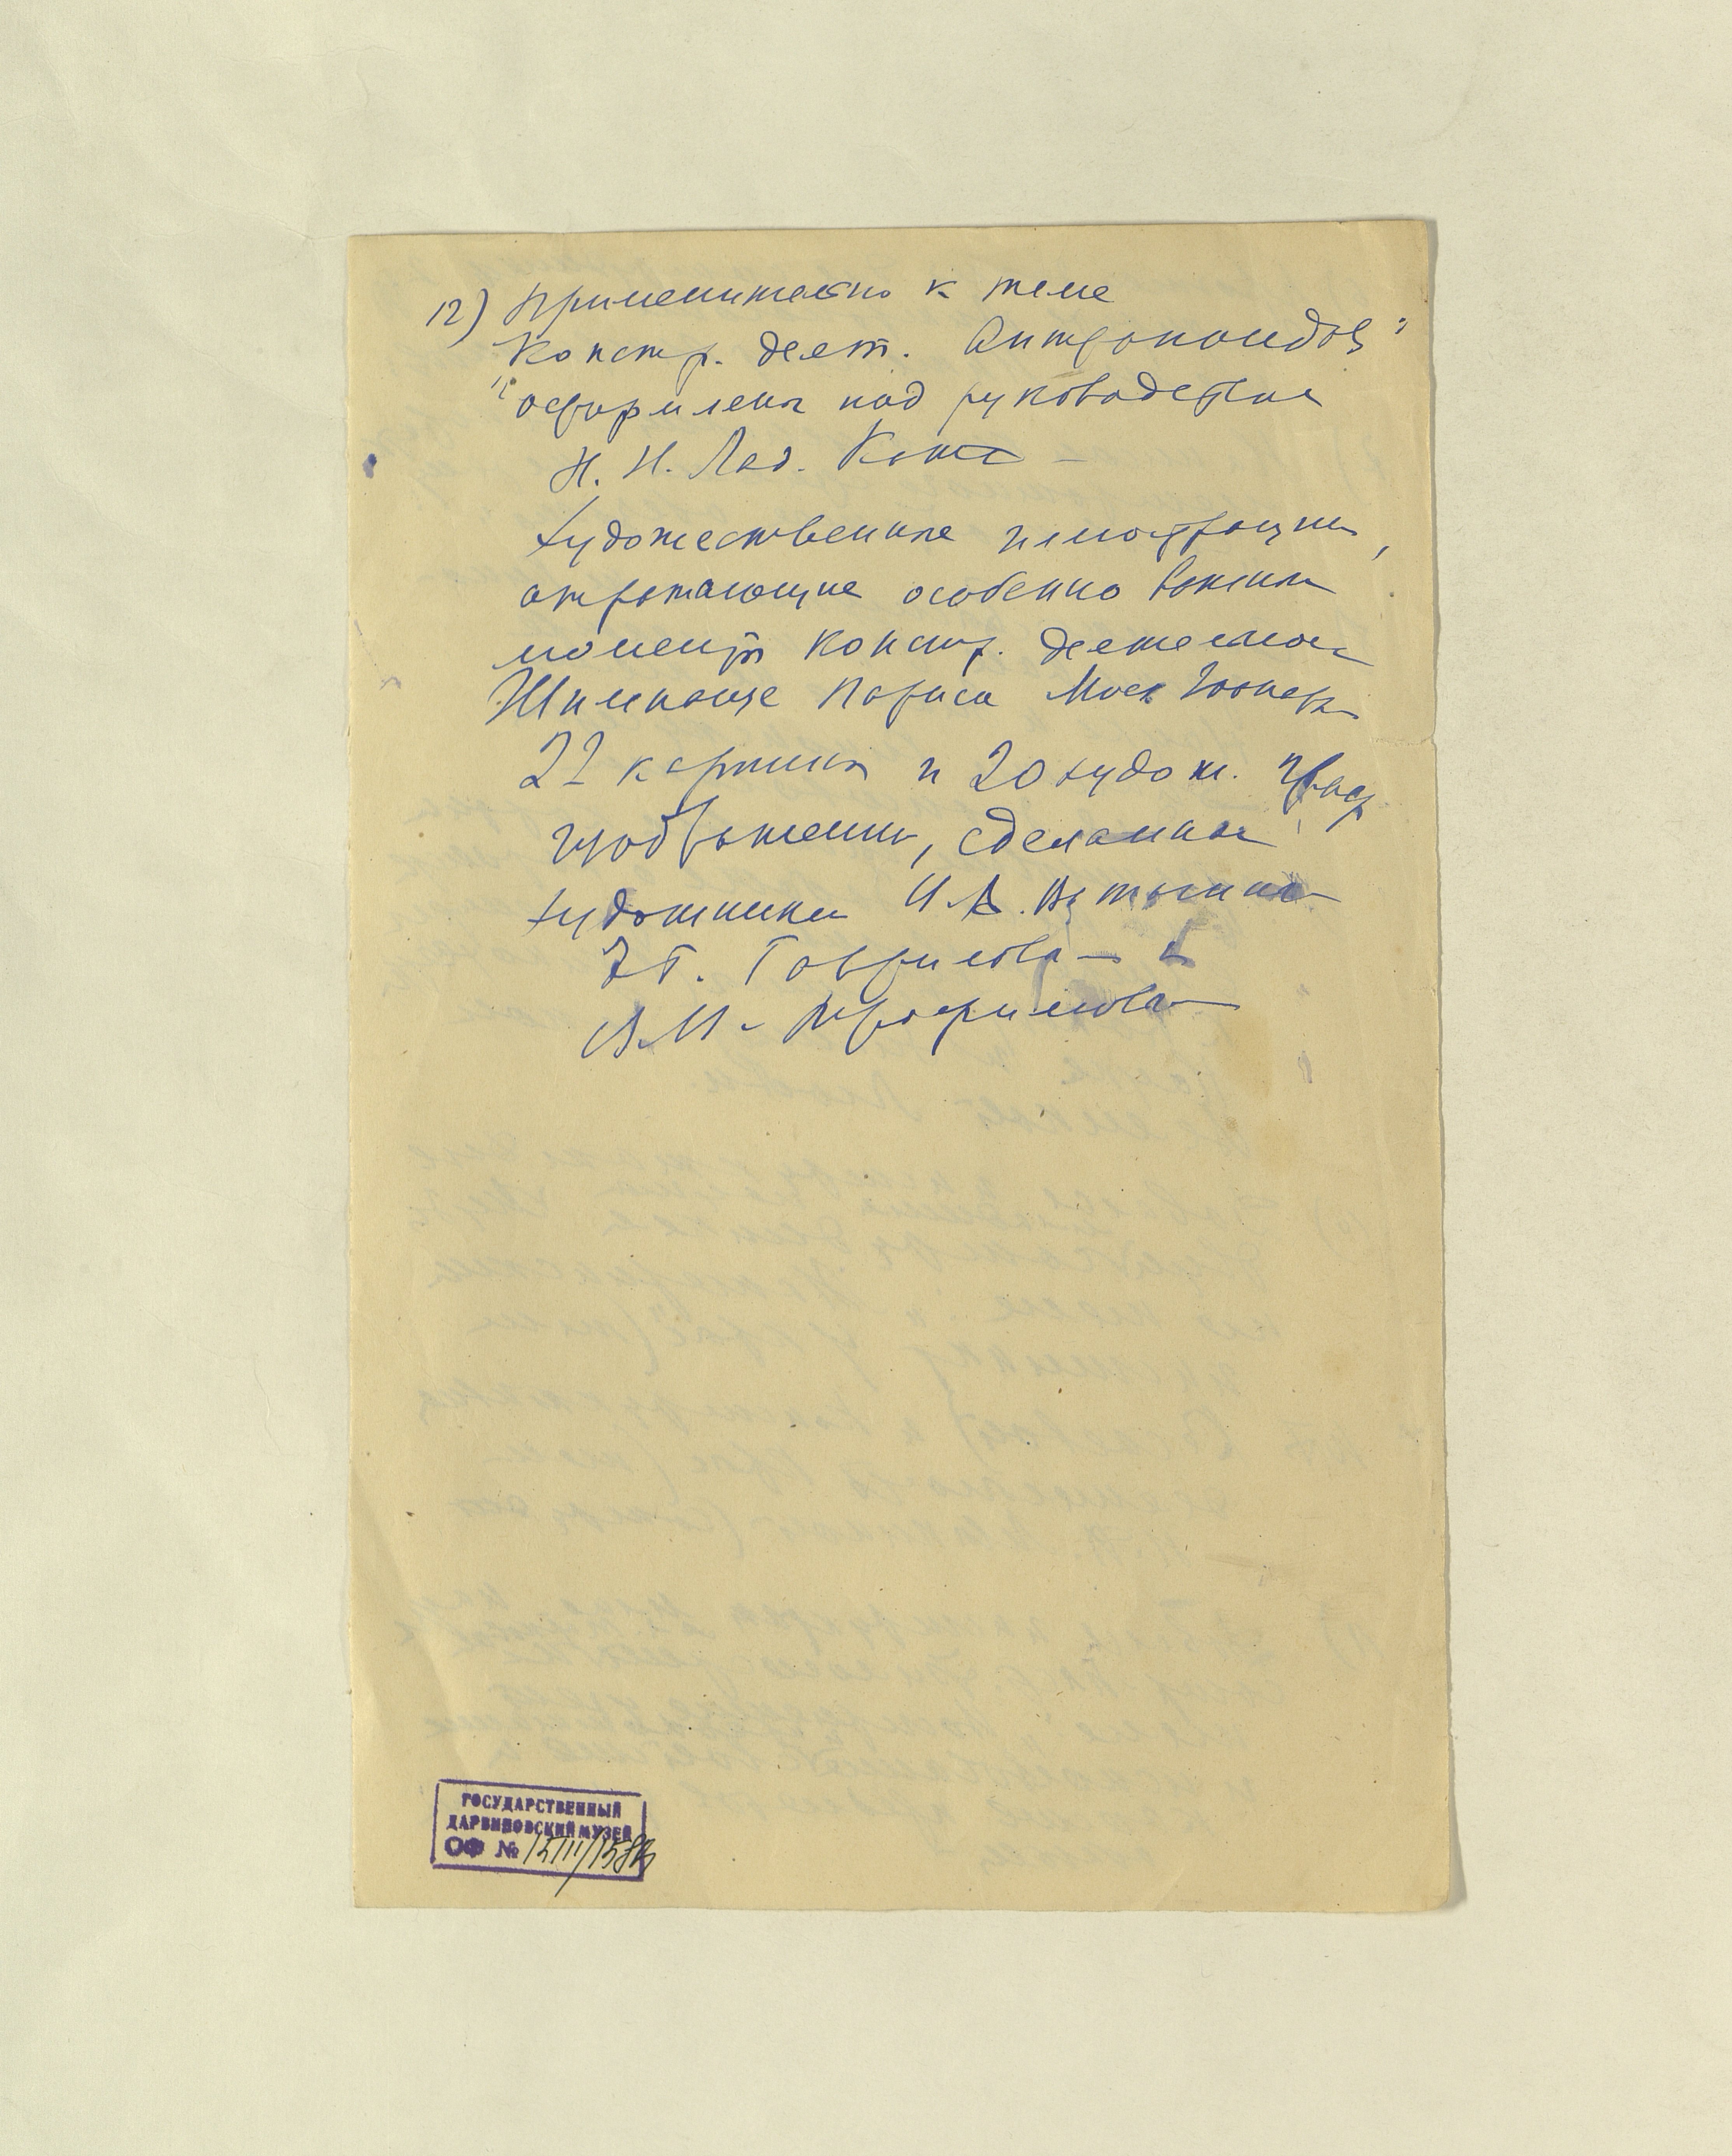 12) Применительно к теме
Констр. деят. Антропоидов"
"оформлены под руководством
Н. Н. Лад. Котс –
художественные иллюстрации,
отражающие особенно важные
моменты констр. деятельнос
Шимпанзе Париса Моск Зоопарк
22 картины и 20 худож.
изображений, сделанных
художниками
Гаврилова
В.М. Трофимова
ГОСУДАРСТВЕННЫЙ
ДАРВИНОВСКИЙ МУЗЕЙ
ОФ №